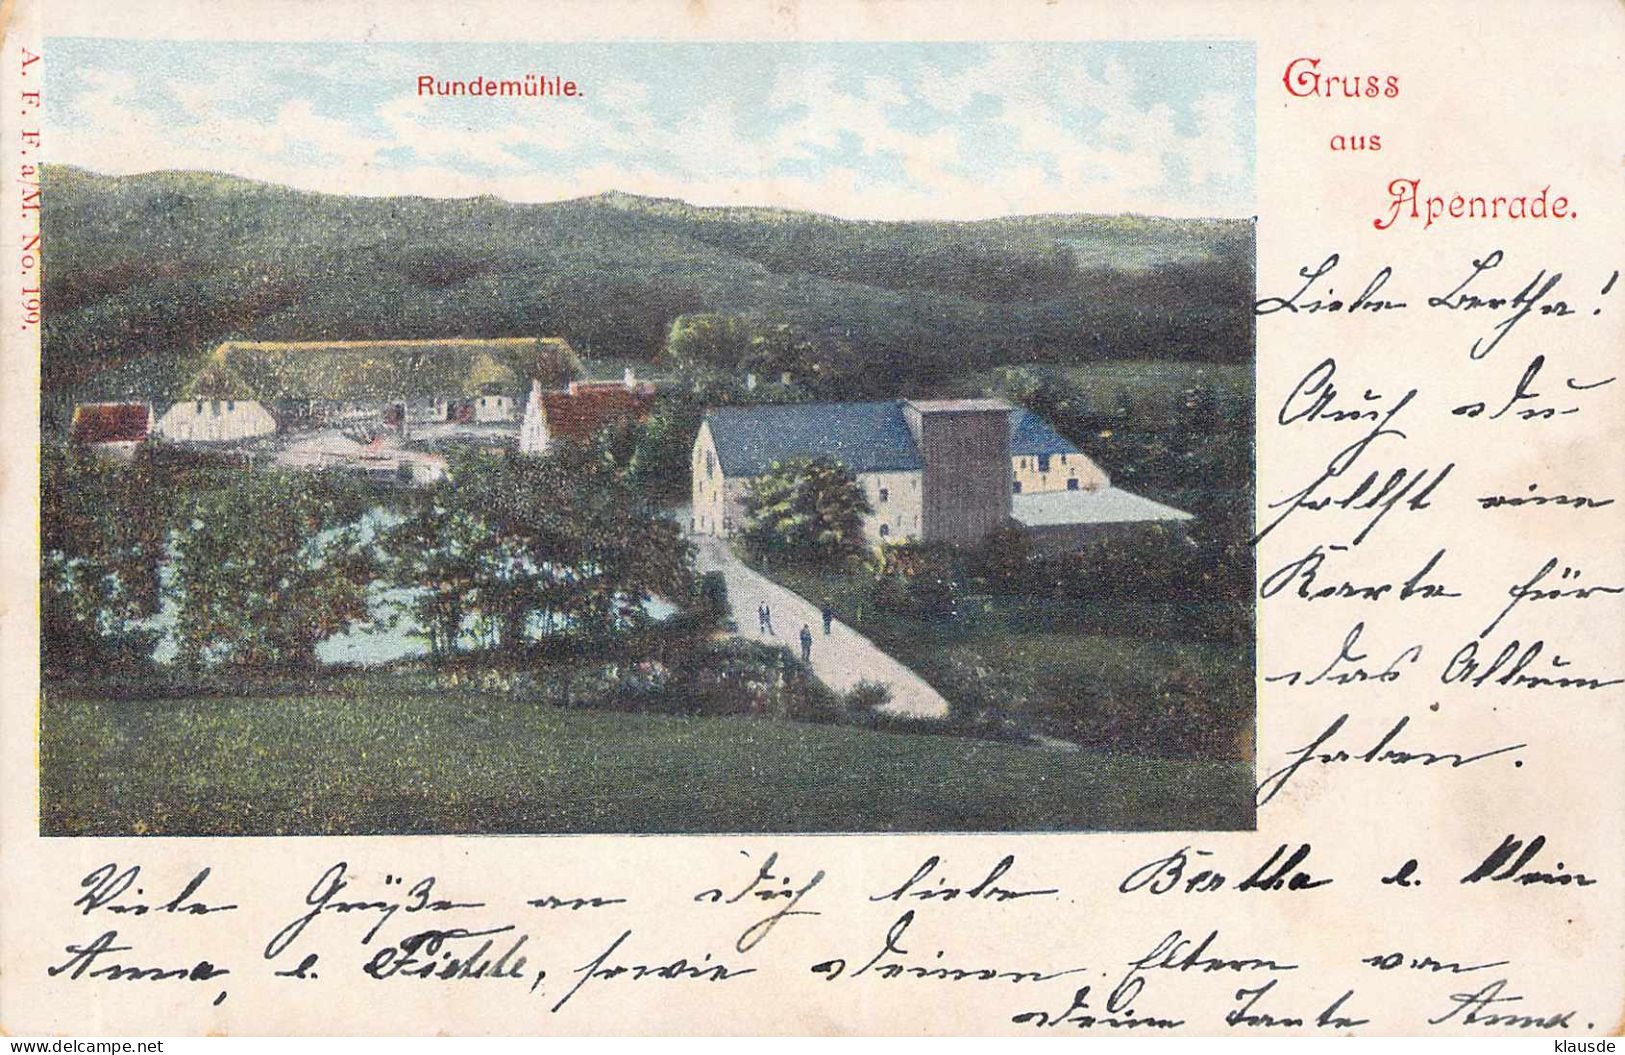 A. F. F. a/M. No. 199.
Rundemühle.
Gruss
aus
Apenrade.
Liebe Bertha!
Auch Du
sollst eine
Karte für
das Album
haben.
Viele Grüße an Dich liebe Bertha u. Klein
Anna, u. sowie Deinen Eltern von
Deine Tante Anna.
klausde
delcampe.net